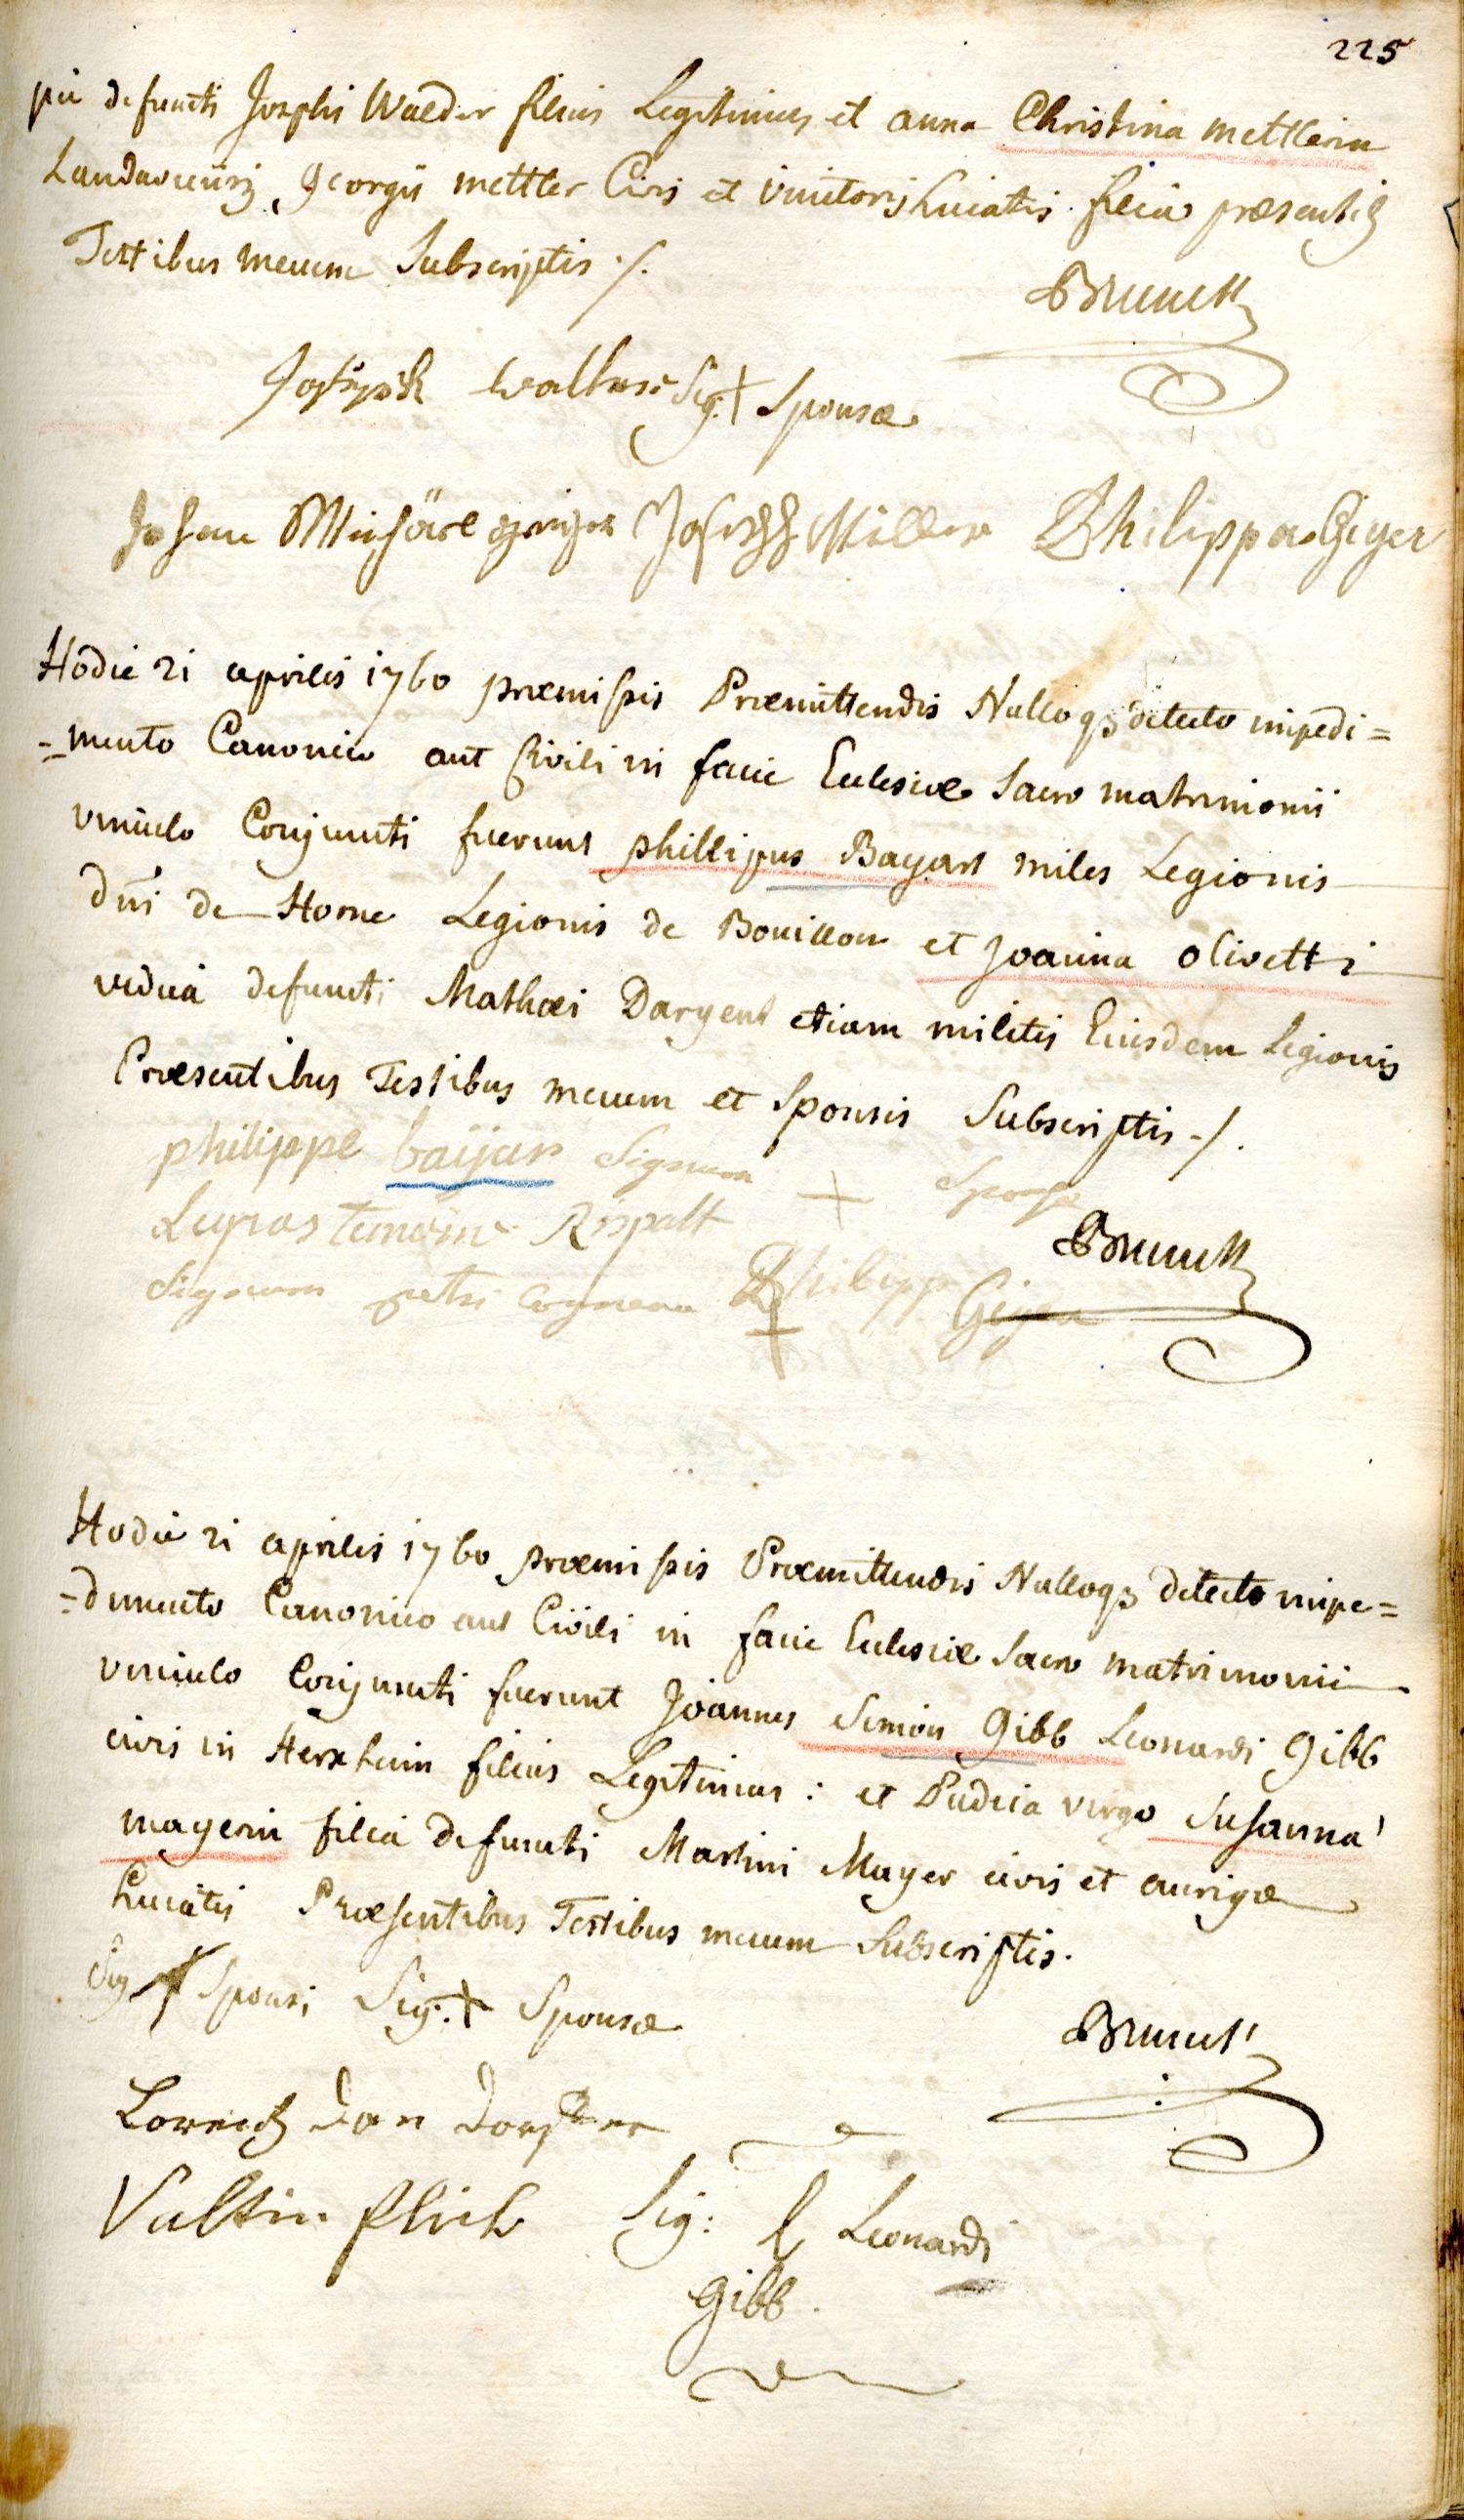 225
pie defuncti Josephi Walder filius Legitimus et anna Christina mettlerin
Landaviensis, georgii mettler Civis et vinitoris huiatis filia præsentib9
Testibus mecum Subscriptis ./.
Brunck
Joseph walther Sig: + Sponsæ
Johan Joseph Müller Philipp a Giger
Hodie 21 aprilis 1760 præmissis Præmittendis Nulloq3 detecto impedi=
=mento Canonico aut Civili in facie Eclesiæ Sacro matrimonii
vinculo Conjuncti fuerunt phillipus Bayart miles Legionis
dni de Horne Legionis de Bouillon et Joanna olivetti
vidua defuncti Mathæi Dargent etiam militis Eiusdem Legionis
Præsentibus Testibus mecum et Sponsis Subscriptis ./.
philippe baijar Signum + Sponsæ
Legras temoin Rispalt
Brunck
Signum petri + Philipp Giger
Hodie 21 aprilis 1760 præmissis Præmittendis Nulloq3 detecto impe=
=dimento Canonico aut Civili in facie Eclesiæ Sacro matrimonii
vinculo Conjuncti fuerunt Joannes Simon Gibb Leonardi Gibb
civis in Herxheim filius Legitimus : et Pudica virgo Susanna
mayerin filia defuncti Martini Mayer civis et aurigæ
huiatis Præsentibus Testibus mecum Subscriptis.
Sig + Sponsi Sig: + Sponsæ
Brunck
Lorentz
Valtin flick Sig: L Leonardi
Gibb.